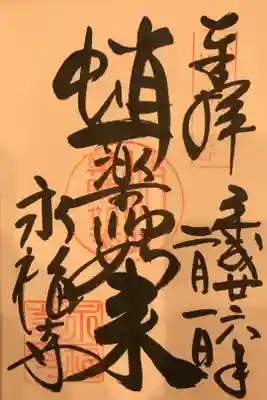 奉拝
平成廿六年
二月一日
蛸薬師如来
永福寺